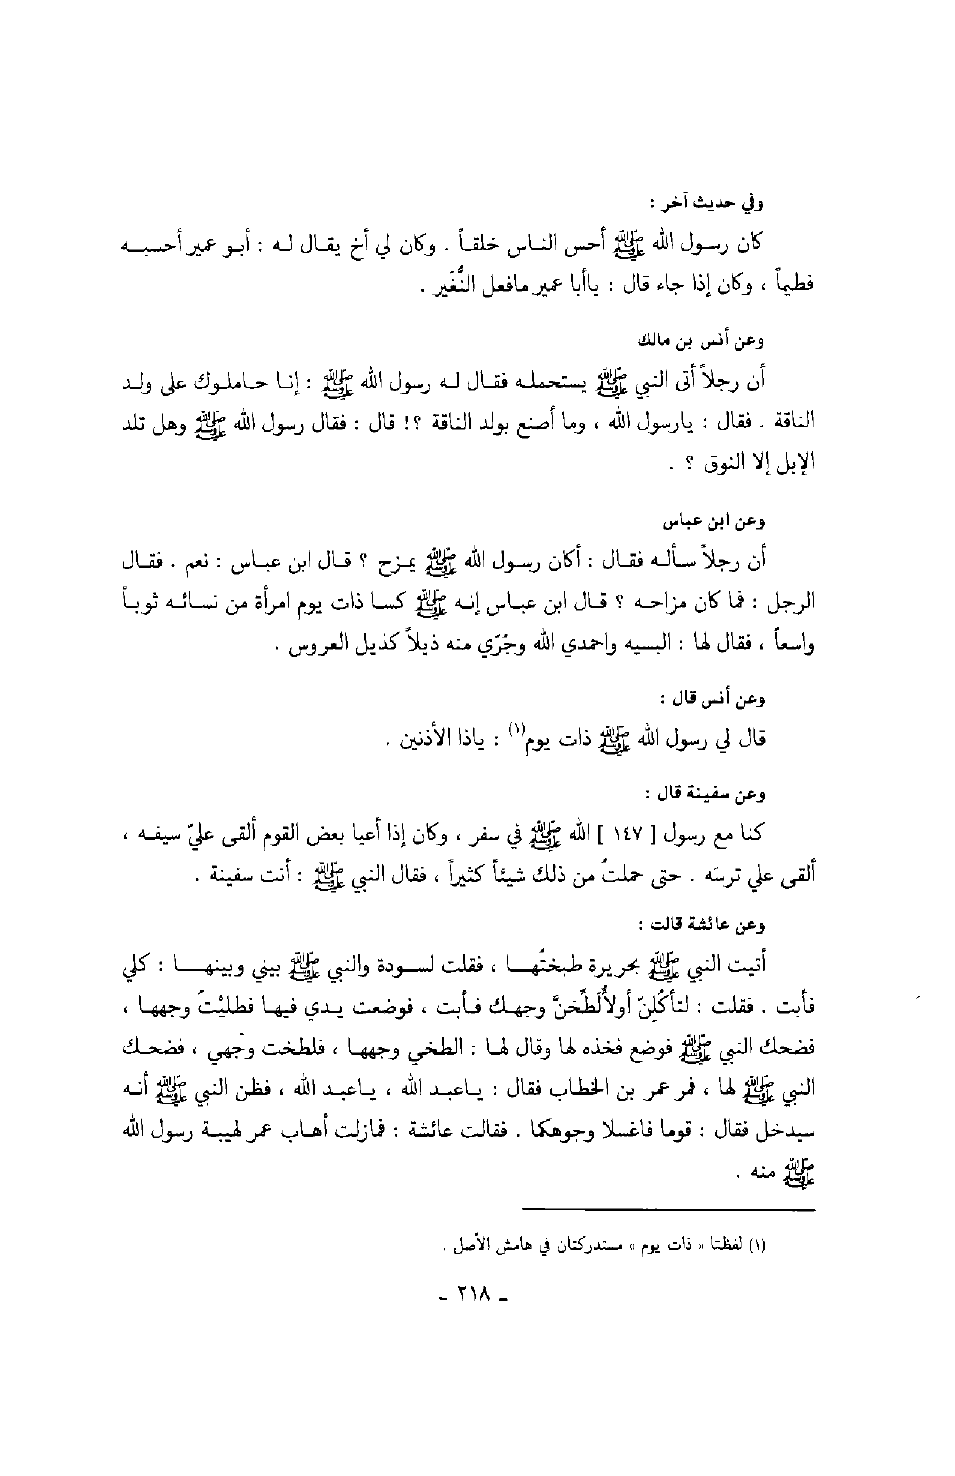 وفي حديث آخر :
كان رسول الله ﷺ أحسن الناس خلقاً . وكان لي أخ يقال له : أبو عمير أحسبه
فطيماً ، وكان إذا جاء قال : ياأبا عمير مافعل النُّغَير .
وعن أنس بن مالك
أن رجلاً أتى النبي ﷺ يستحمله فقال له رسول الله ﷺ : إنا حاملوك على ولد
الناقة . فقال : يارسول الله ، وما أصنع بولد الناقة ؟! قال : فقال رسول الله ﷺ وهل تلد
الإبل إلا النوق ؟ .
وعن ابن عباس
أن رجلاً سأله فقال : أكان رسول الله ﷺ يمزح ؟ قال ابن عباس : نعم . فقال
الرجل : فما كان مزاحه ؟ قال ابن عباس إنه ﷺ كسا ذات يوم امرأة من نسائه ثوباً
واسعاً ، فقال لها : البسيه واحمدي الله وجُرّي منه ذيلاً كذيل العروس .
وعن أنس قال :
قال لي رسول الله ﷺ ذات يوم(١) : ياذا الأذنين .
وعن سفينة قال :
كنا مع رسول [ ١٤٧ ] الله ﷺ في سفر ، وكان إذا أعيا بعض القوم ألقى عليّ سيفه ،
ألقى علي ترسَه . حتى حملتُ من ذلك شيئاً كثيراً ، فقال النبي ﷺ : أنت سفينة .
وعن عائشة قالت :
أتيت النبي ﷺ بحريرة طبختُها ، فقلت لسودة والنبي ﷺ بيني وبينها : كلي
فأبت . فقلت : لتأكُلِنّ أولأُلَطِّخنَّ وجهك فأبت ، فوضعت يدي فيها فطليْتُ وجهها ،
فضحك النبي ﷺ فوضع فخذه لها وقال لها : الطخي وجهها ، فلطخت وجهي ، فضحك
النبي ﷺ لها ، فمر عمر بن الخطاب فقال : ياعبد الله ، ياعبد الله ، فظن النبي ﷺ أنه
سيدخل فقال : قوما فاغسلا وجوهكما . فقالت عائشة : فمازلت أهاب عمر لهيبة رسول الله
ﷺ منه .
(١) لفظتا « ذات يوم » مستدركتان في هامش الأصل .
ـ ٢١٨ ـ